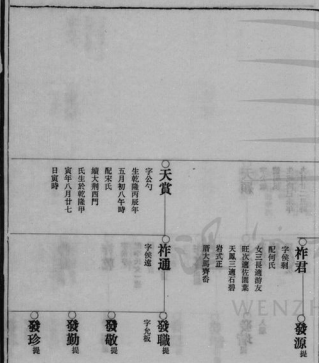 祚君
字侯剩
配何氏
女三長適游友
旺次適佐園葉
天鳳三適石碧
岩式正
譜大馬齊呑
發源提
天賞
字公勺
生乾隆丙辰年
五月初八午時
配宋氏
續大荆西門
氏生於乾隆甲
寅年八月廿七
日寅時
祚通
字侯遠
發職提
字允板
發敬提
發勤提
發珍提
WENZH